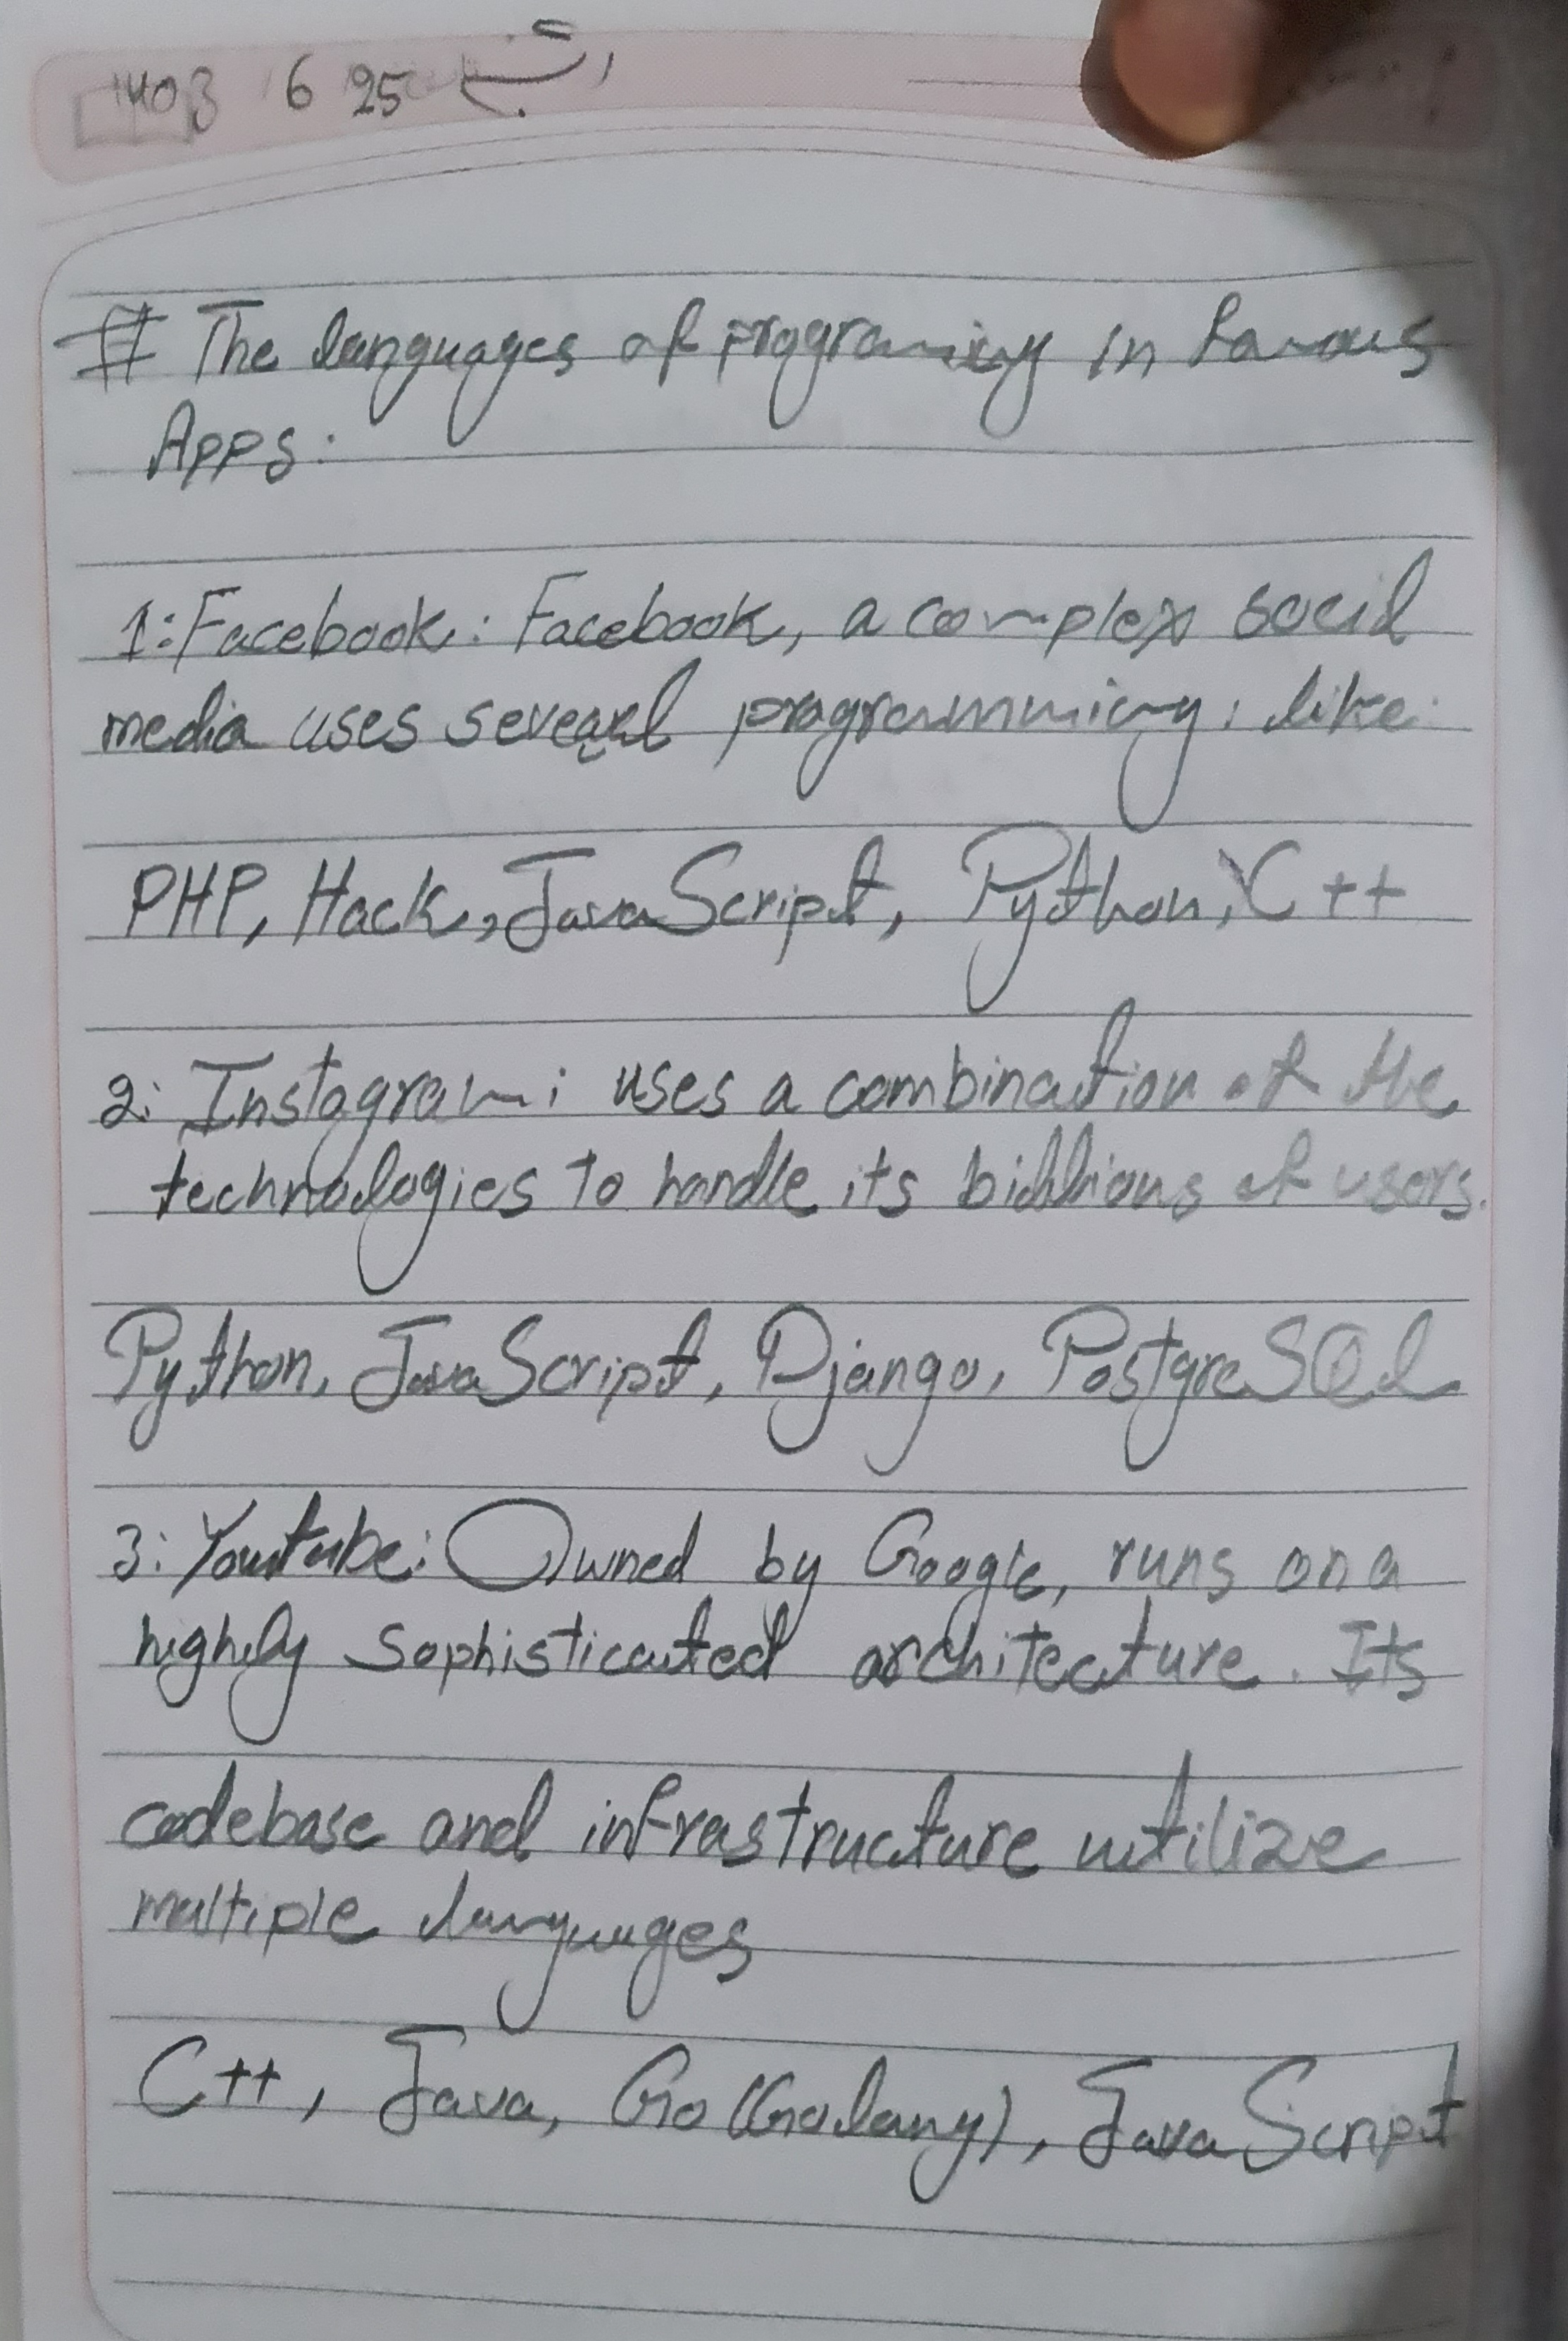 1403 6 25
# The languages of programing in famous
Apps:
1: Facebook: Facebook, a complex social
media uses several programming, like:
PHP, Hack, JavaScript, Python, C++
2: Instagram: uses a combination of the
technologies to handle its billions of users.
Python, JavaScript, Django, PostgreSQL
3: Youtube: Owned by Google, runs on a
highly sophisticated architecture. Its
codebase and infrastructure utilize
multiple languages
C++, Java, Go (Golang), JavaScript